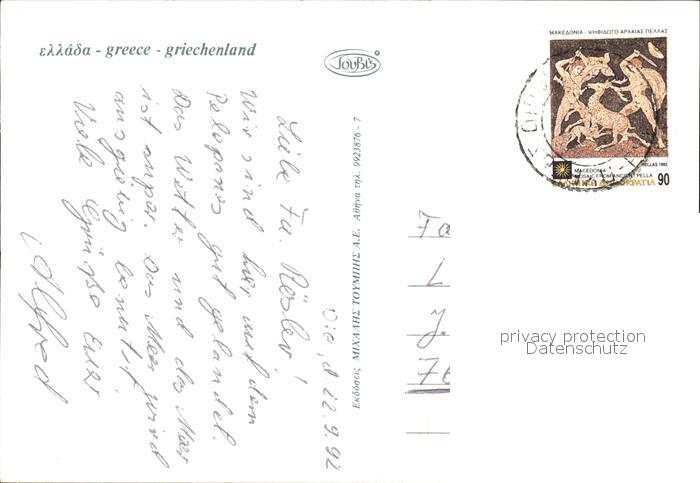 ελλάδα - greece - griechenland
Τουβi's
Die, d 22.9.92
Liebe Fa. Rösler!
Wir sind hier auf dem
Peloponnes gut gelandet.
Das Wetter und das Meer
ist super. Das Meer wird
ausgiebig benutzt.
Viele Grüße Euer
Alfred
Εκδόσεις ΜΙΧΑΛΗΣ ΤΟΥΜΠΗΣ Α.Ε. Αθήνα τηλ. 9923876 - 7
ΜΑΚΕΔΟΝΙΑ - ΨΗΦΙΔΩΤΟ ΑΡΧΑΙΑΣ ΠΕΛΛΑΣ
HELLAS 1992
MACEDONIA
MOSAIC FROM ANCIENT PELLA
ΕΛΛΗΝΙΚΗ ΔΗΜΟΚΡΑΤΙΑ 90
Fa
L
J.
70
privacy protection
Datenschutz